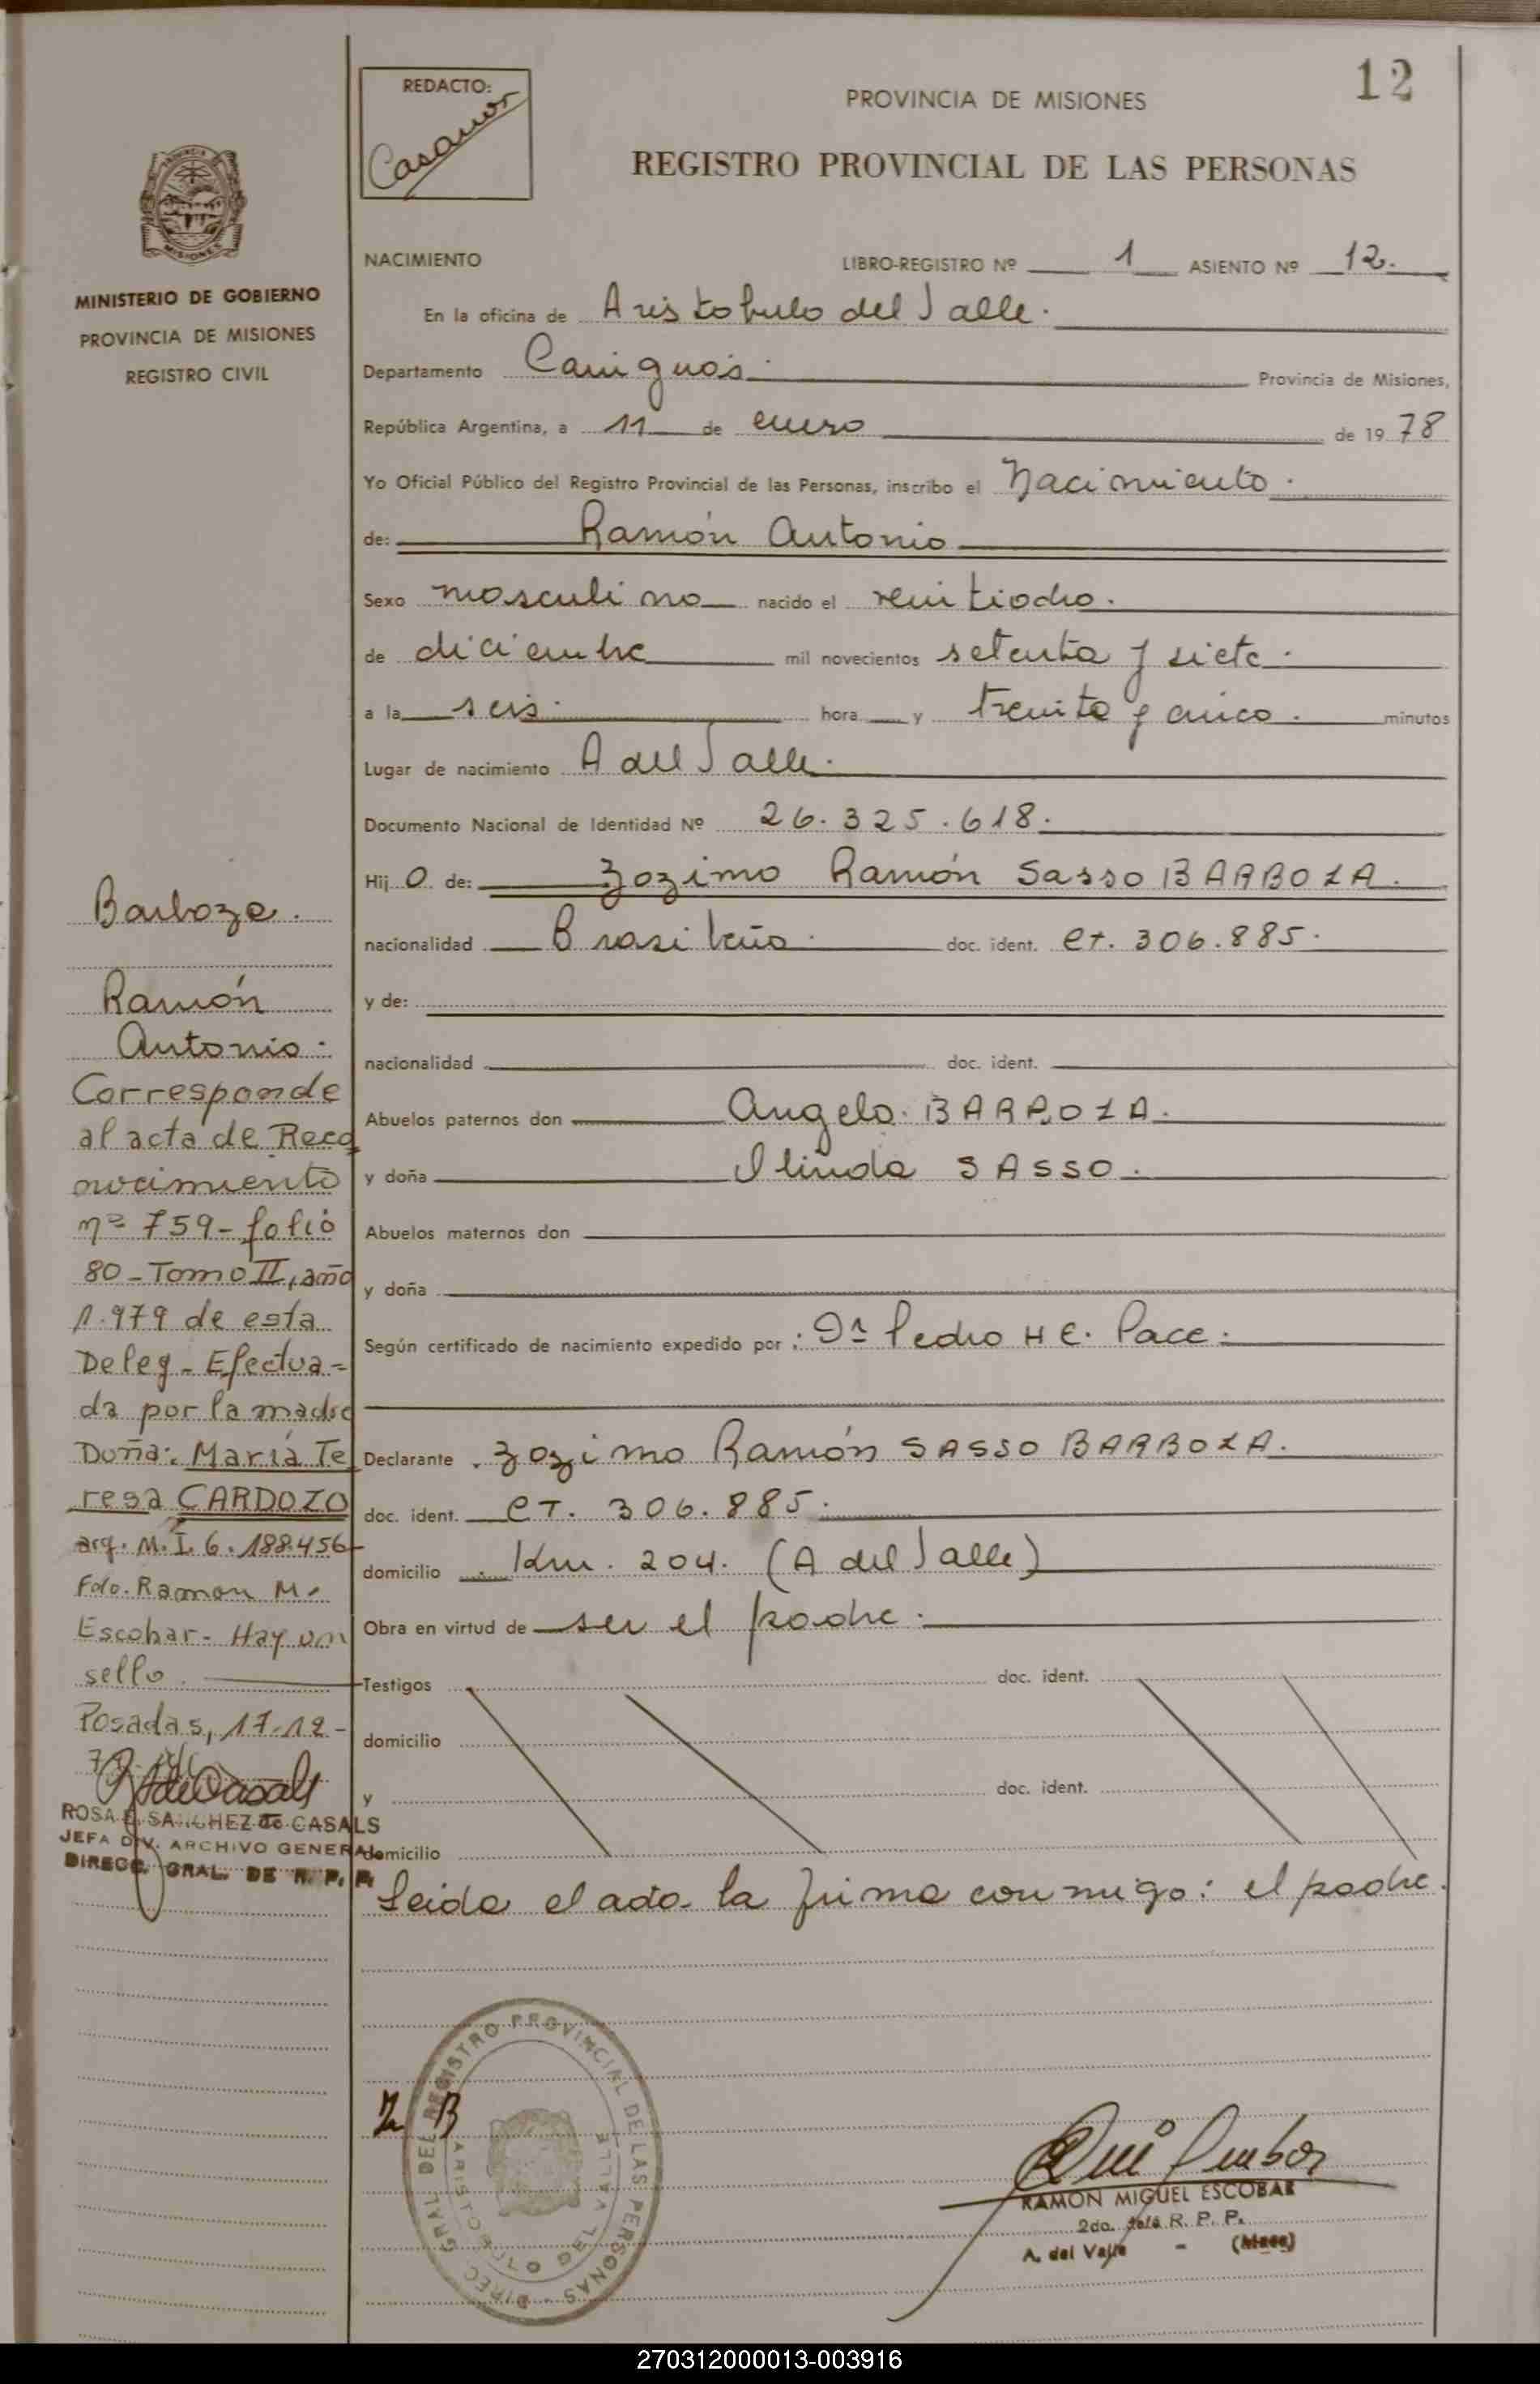 12
REDACTO:
PROVINCIA DE MISIONES
REGISTRO PROVINCIAL DE LAS PERSONAS
MINISTERIO DE GOBIERNO
PROVINCIA DE MISIONES
REGISTRO CIVIL
NACIMIENTO LIBRO-REGISTRO Nº 1 ASIENTO Nº 12.
En la oficina de Aristobulo del Valle.
Departamento Cainguás. Provincia de Misiones,
República Argentina, a 11 de enero de 1978
Yo Oficial Público del Registro Provincial de las Personas, inscribo el Nacimiento.
de: Ramón Antonio
Sexo masculino nacido el veintiocho.
de diciembre mil novecientos setenta y siete.
a la seis. hora y treinta y cinco. minutos
Lugar de nacimiento A del Valle.
Documento Nacional de Identidad Nº 26.325.618.
Hijo de: Zozimo Ramón Sasso BARBOZA.
nacionalidad Brasileña. doc. ident. CT. 306.885.
y de:
nacionalidad doc. ident.
Abuelos paternos don Angelo BARBOZA.
y doña SASSO.
Abuelos maternos don
y doña
Según certificado de nacimiento expedido por: Dr Pedro H C. Pace.
Declarante Zozimo Ramón SASSO BARBOZA.
doc. ident. CT. 306.885.
domicilio Km. 204. (A del Valle)
Obra en virtud de ser el padre.
Testigos doc. ident.
domicilio
y doc. ident.
domicilio
Leida el acta la firma conmigo: el padre.
Barboza.
Ramón
Antonio.
Corresponde
al acta de Reco
nocimiento
nº 759-folio
80-Tomo II, año
1.979 de esta
Deleg-Efectua-
da por la madre
Doña: María Te
resa CARDOZO
arg. M.I. 6.188.456
Fdo. Ramon M.
Escobar- Hay un
sello.
Posadas, 17-12-
ROSA E. SANCHEZ de CASALS
JEFA DIV. ARCHIVO GENERAL
DIRECC. GRAL. DE R. P. P.
Z B
DIREC GRAL DEL REGISTRO PROVINCIAL DE LAS PERSONAS
ARISTOBULO DEL VALLE
RAMON MIGUEL ESCOBAR
2do. Jefe R. P. P.
A. del Valle - (Mnes)
270312000013-003916